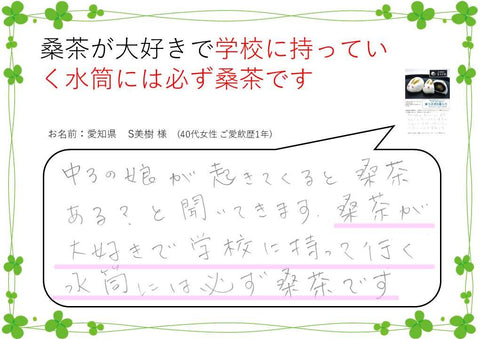 桑茶が大好きで学校に持ってい
く水筒には必ず桑茶です
お名前：愛知県　S美樹 様　(40代女性 ご愛飲歴1年)
中3の娘が起きてくると桑茶
ある？と聞いてきます。桑茶が
大好きで学校に持って行く
水筒には必ず桑茶です